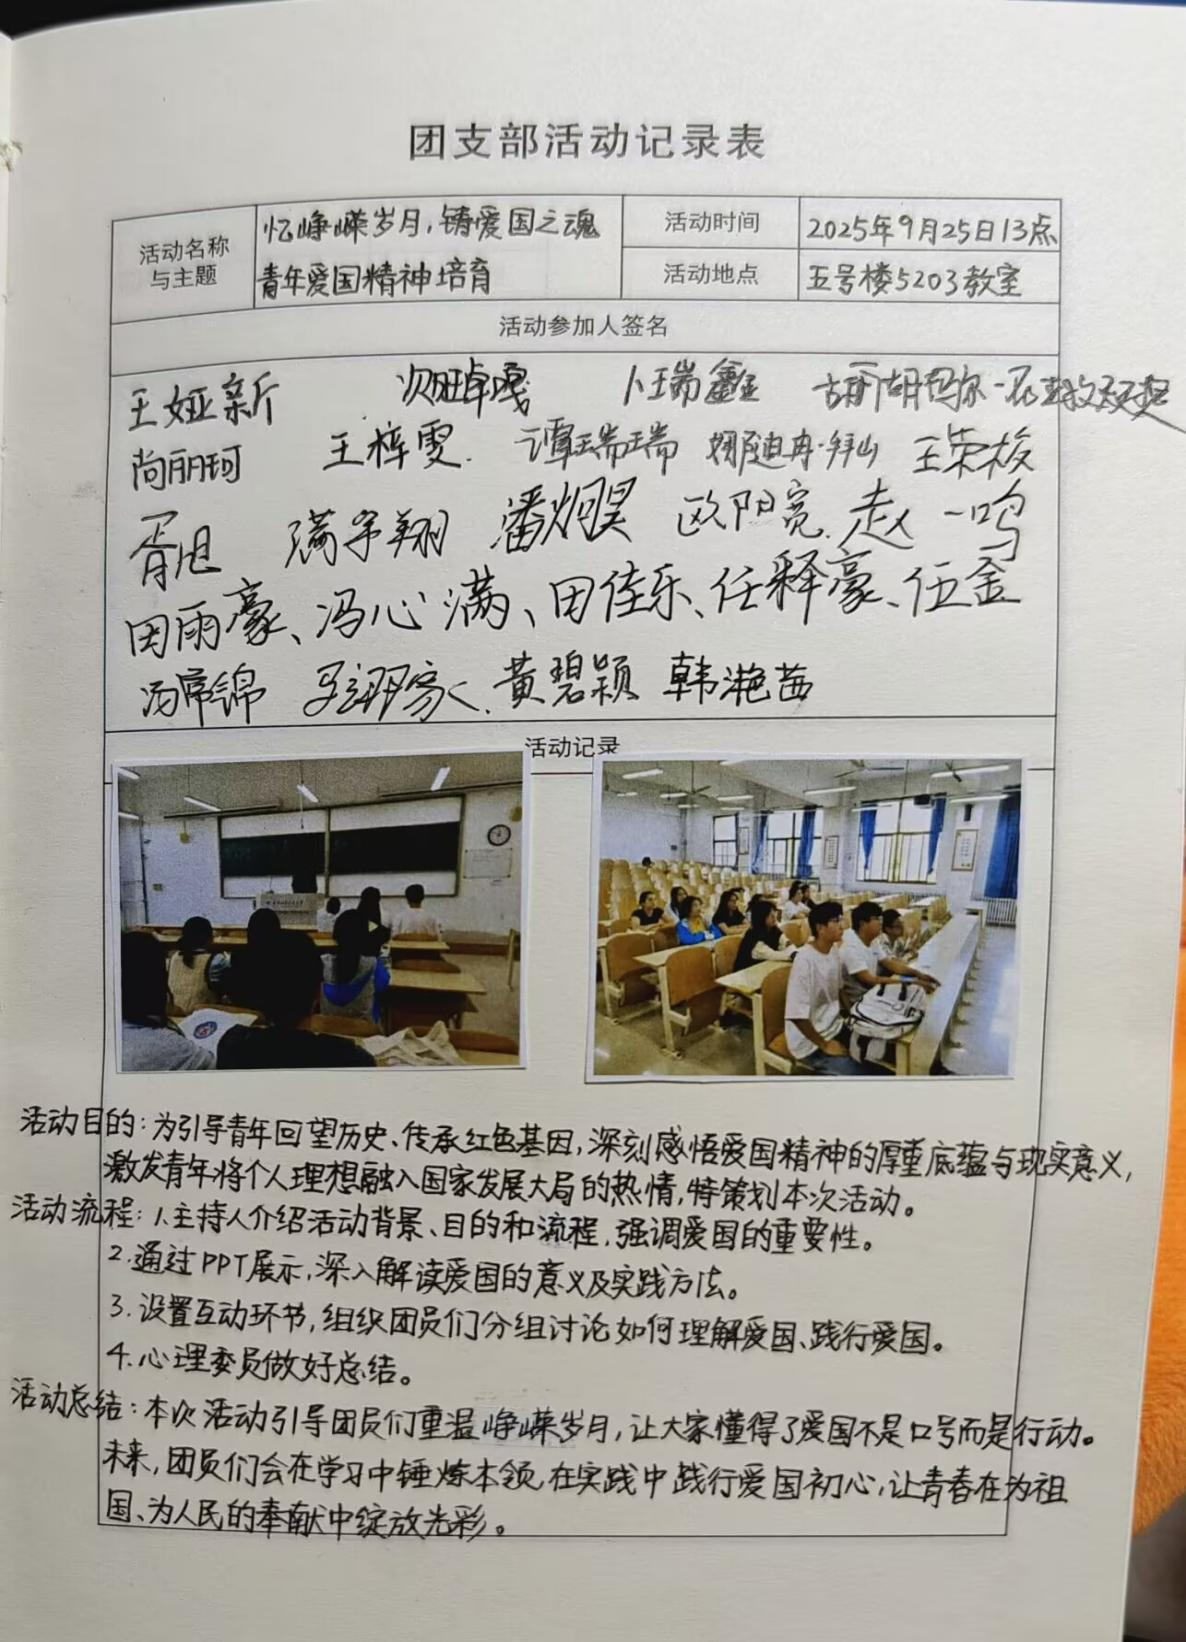 团支部活动记录表
活动名称与主题
忆峥嵘岁月,铸爱国之魂
青年爱国精神培育
活动时间
2025年9月25日13点
活动地点
五号楼5203教室
活动参加人签名
王娅新 次旺卓嘎 卜瑞鑫
尚丽珂 王梓雯. 谭瑞瑞 娜迪冉·拜山 王荣梭
胥旭 满宇翔 潘炯昊 欧阳亮. 赵一鸣
田雨豪、冯心满、田佳乐、任释豪、伍金
汤席锦 黄碧颖 韩滟茜
活动记录
活动目的:为引导青年回望历史、传承红色基因,深刻感悟爱国精神的厚重底蕴与现实意义,
激发青年将个人理想融入国家发展大局的热情,特策划本次活动。
活动流程:1.主持人介绍活动背景、目的和流程,强调爱国的重要性。
2.通过PPT展示,深入解读爱国的意义及实践方法。
3.设置互动环节,组织团员们分组讨论如何理解爱国、践行爱国。
4.心理委员做好总结。
活动总结:本次活动引导团员们重温峥嵘岁月,让大家懂得了爱国不是口号而是行动。
未来,团员们会在学习中锤炼本领,在实践中践行爱国初心,让青春在为祖
国、为人民的奉献中绽放光彩。